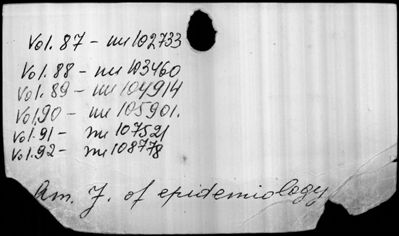 Vol. 87 - nu 102733
Vol. 88 - nu 103460
Vol. 89 - nu 104914
Vol. 90 - nu 105901.
Vol. 91 - nu 107521
Vol. 92 - nu 108778
Am. J. of epidemiology